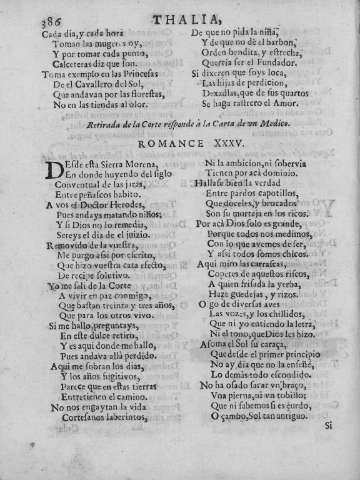 386
THALIA,
Cada dia, y cada hora
Toman las mugeres oy,
Y por tomar cada punto,
Calceteras diz que son.
Toma exemplo en las Princesas
De el Cavallero del Sol,
Que andavan por las florestas,
No en las tiendas al olor.
De que no pida la niña,
Y de que no dè el barbon,
Orden bendita, y estrecha,
Querria ser el Fundador.
Si dixeren que soys loca,
Las hijas de perdicion,
Dexallas, que de sus quartos
Se haga rastrero el Amor.
Retirada de la Corte responde à la Carta de un Medico.
ROMANCE XXXV.
DEsde esta Sierra Morena,
En donde huyendo del siglo
Conventual de las jaras,
Entre peñascos habito.
A vos el Doctor Herodes,
Pues andays matando niños;
Y si Dios no lo remedia,
Sereys el dia de el juizio.
Removido de la vuestra,
Me purgo assi por escrito,
Que hizo vuestra cata efecto,
De recipe soletivo.
Yo me sali de la Corte
A vivir en paz conmigo,
Que bastan treinta y tres años,
Que para los otros vivo.
Si me hallo, preguntays,
En este dulce retiro,
Y es aqui donde me hallo,
Pues andava allà perdido.
Aqui me sobran los dias,
Y los años fugitivos,
Parece que en estas tierras
Entretienen el camino.
No nos engaytan la vida
Cortesanos laberintos,
Ni la ambicion, ni sobervia
Tienen por acà dominio.
Hallase bien la verdad
Entre pardos capotillos,
Que doceles, y brocados
Son su mortaja en los ricos.
Por acà Dios solo es grande,
Porque todos nos medimos,
Con lo que avemos de ser,
Y assi todos somos chicos.
Aqui miro las carrascas,
Copetes de aquestos riscos,
A quien frisada la yerba,
Haze guedejas, y rizos.
O go de diversas aves
Las vozes, y los chillidos,
Que ni yo entiendo la letra,
Ni el tono, que Dios les hizo.
Asoma el Sol su caraça,
Que desde el primer principio
No ay dia que no la enseñe,
Lo demàs todo escondido.
No ha osado sacar vn braço,
Vna pierna, ni vn tobillo;
Que ni sabemos si es çurdo,
O çambo, Sol tan antiguo.
Si